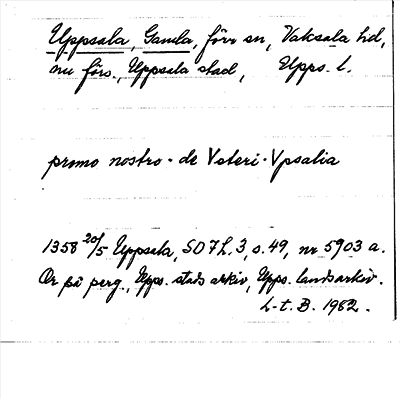 Uppsala, Gamla, förr sn, Vaksala hd,
nu förs., Uppsala stad, Upps. l.
promo nostro · de Veteri · Vpsalia
1358 20/5 Uppsala, SD 7 h. 3, s. 49, nr 5903 a.
Or på perg., Upps. stads arkiv, Upps. landsarkiv.
L-t. B. 1982.